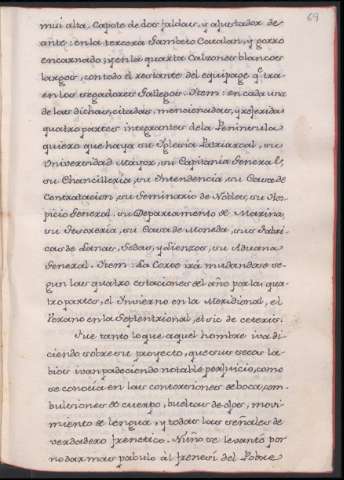 69
mui alta. Capote de dos faldas, y ajustador de
ante: en la tercera Gambeto Catalan, y gorro
encarnado; y en la quarta Calzones blancos
largos, con todo el restante del equipage qe tra-
en los segadores Gallegos. Item: en cada una
de las dichas, citadas, mencionadas, y referidas
quatro partes integrantes de la Peninsula
quiero que haya su Iglesia Patriarcal, su
Universidad Mayor, su Capitania General,
su Chancilleria, su Intendencia, su Casa de
Contratacion, su Seminario de Nobles, su Hos-
picio General, su Departamento de Marina,
su Tesoreria, su Casa de Moneda, sus Fabri-
cas de Lanas, Sedas, y Lienzos, su Aduana
General. Item: La Corte irá mudandose se-
gun las quatro estaciones del año por las qua-
tro partes, el Invierno en la Meridional, el
Verano en la Septentrional, et sic de ceteris.
Fue tanto lo que aquel hombre iva di-
ciendo sobre su proyecto, que sus secos la-
bios ivan padeciendo notable perjuicio, como
se conocía en las contorsiones de boca, com-
bulciones de cuerpo, bueltas de ojos, movi-
miento de lengua, y todas las señales de
verdadero frenetico. Nuño se levantó por
no dar mas pabulo à l frenesí del Pobre